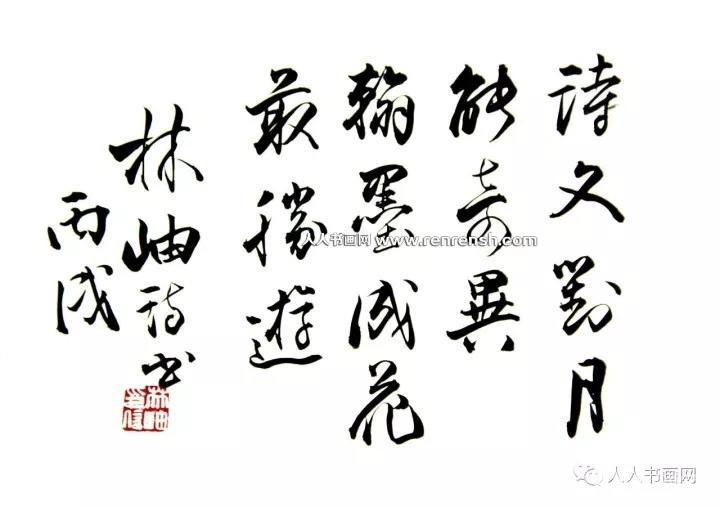 詩文對月
能奇異
翰墨成花
最勝遊
林岫詩書
丙戌
人人书画网 www.renrensh.com
人人书画网